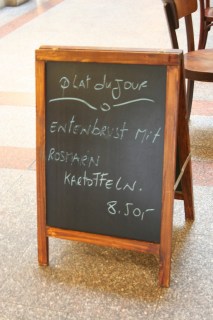 Plat du Jour
Entenbrust mit
Rosmarin
Kartoffeln.
8.50,-